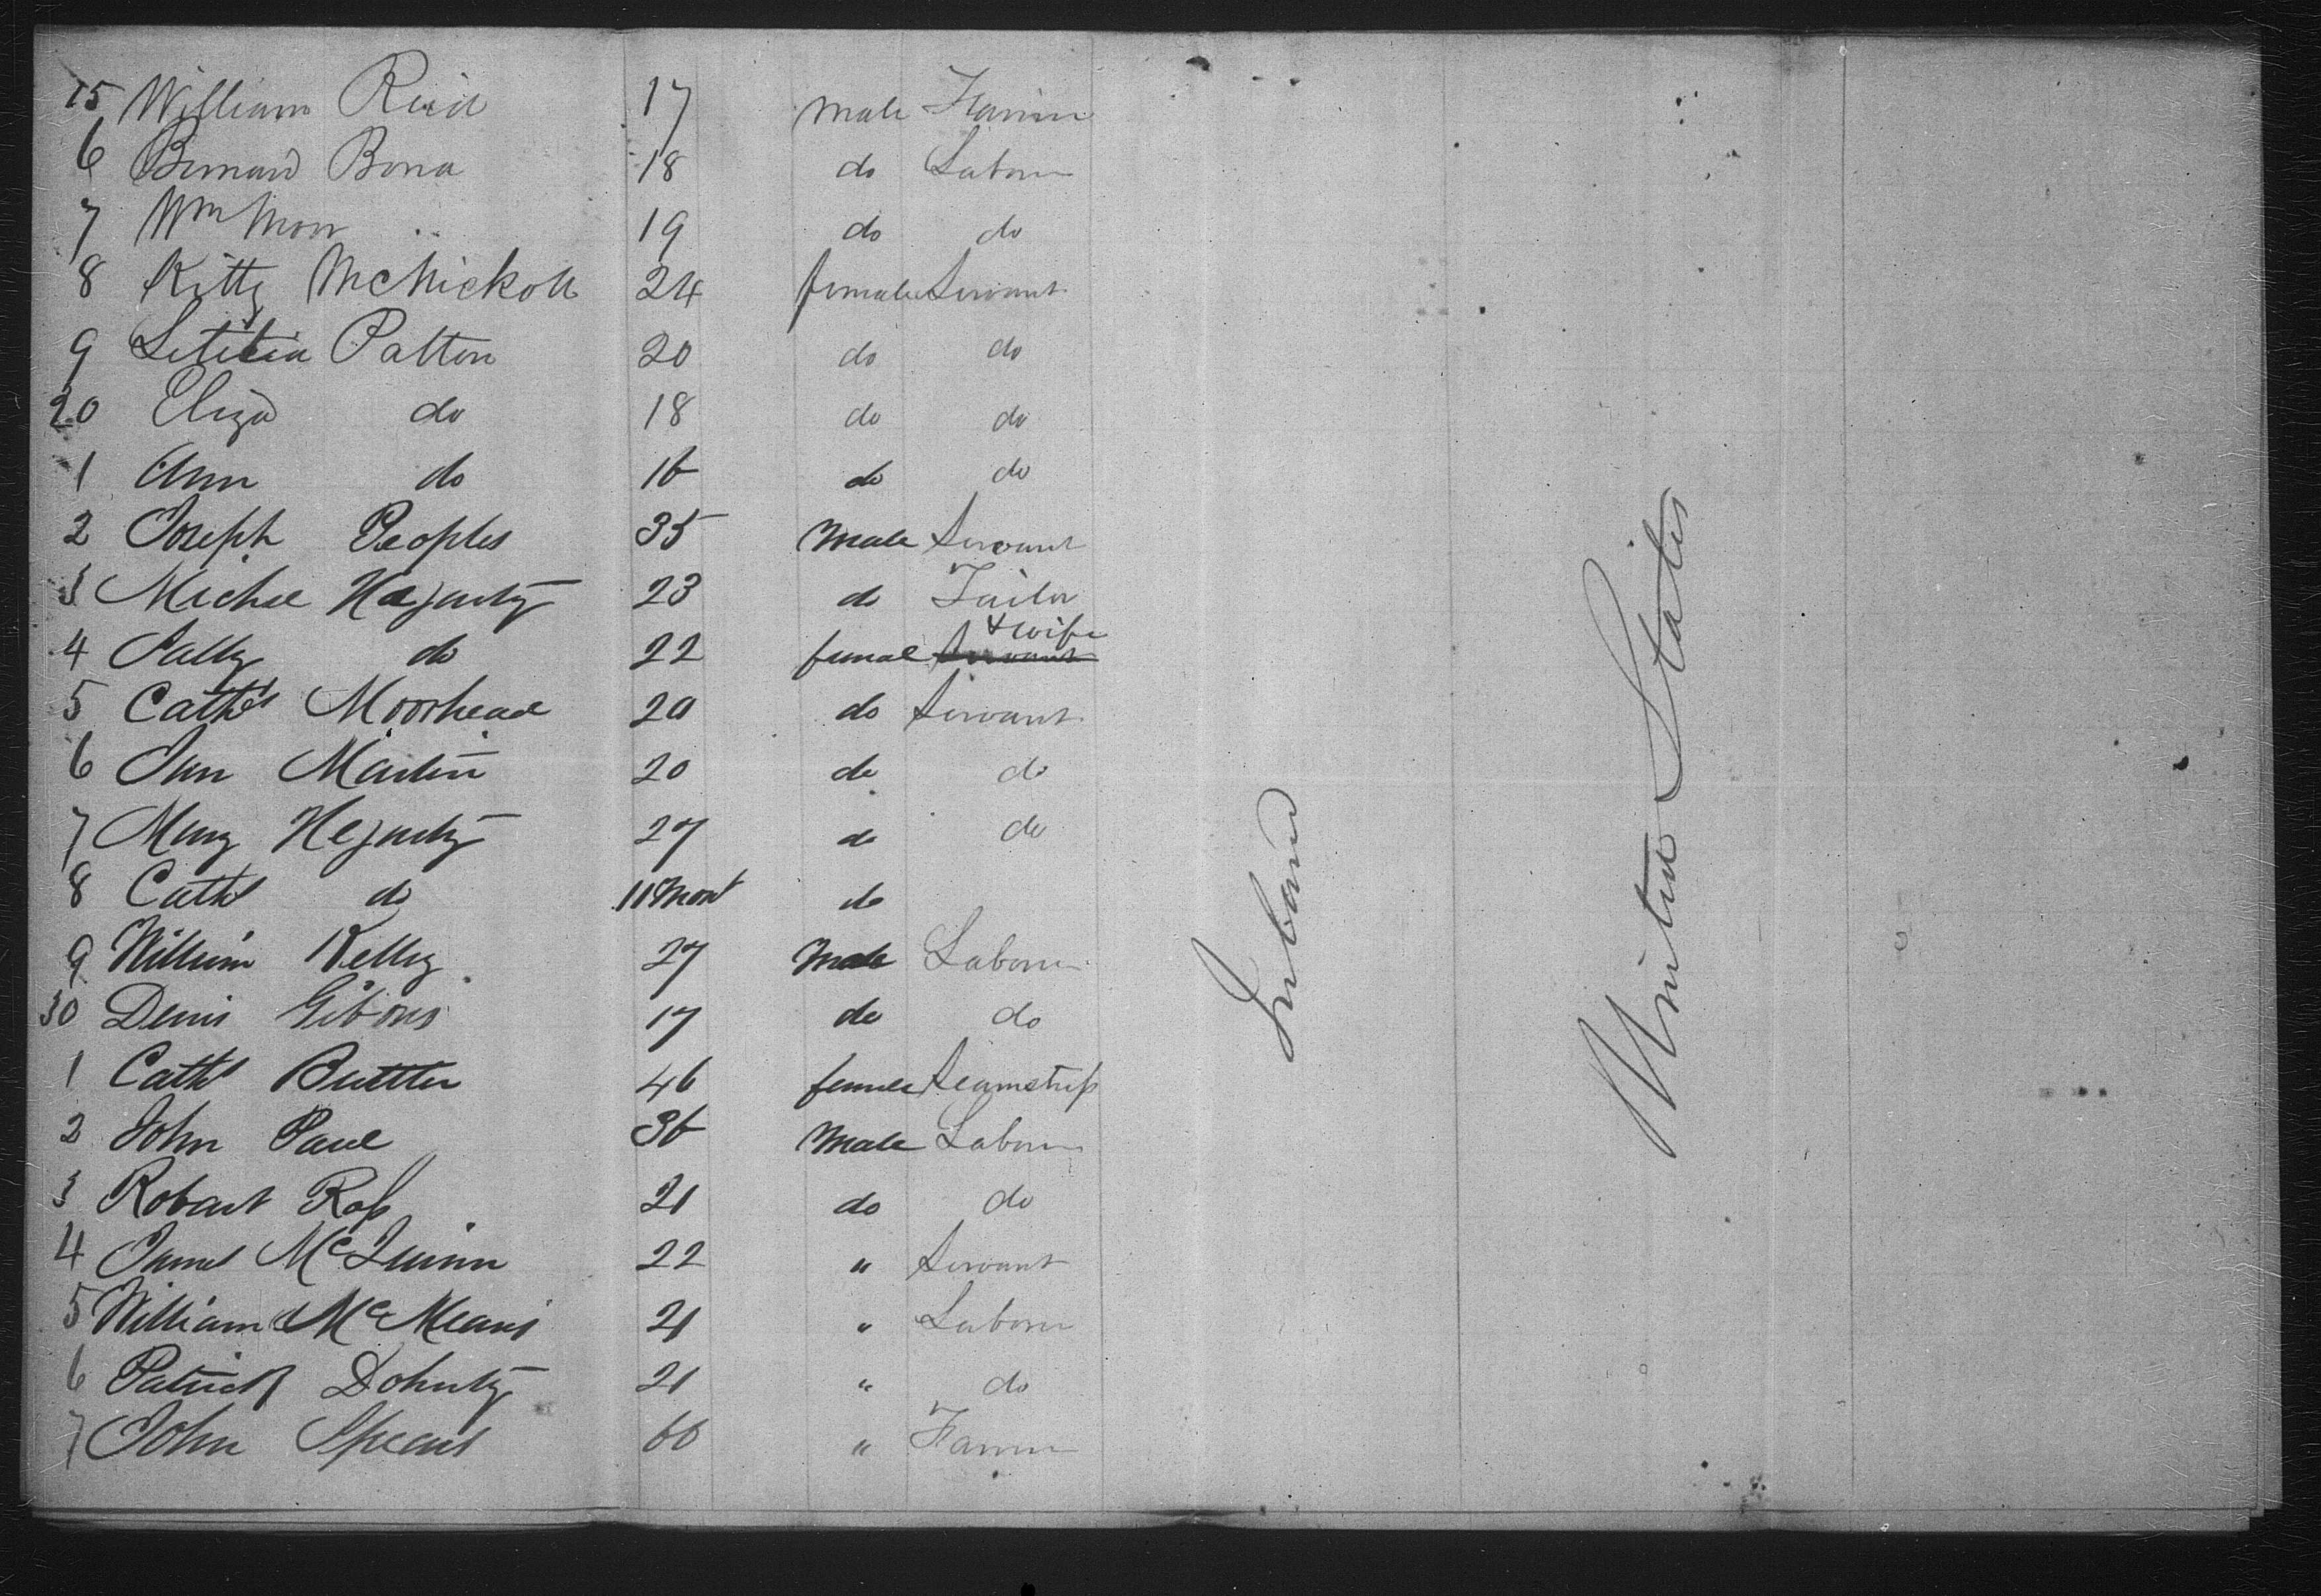 15 William Reid 17 Male Farmer
6 Bernard Bona 18 do Laborer
7 Wm Morr 19 do do
8 Kitty McNickoll 24 female Servant
9 Letitia Patton 20 do do
20 Eliza do 18 do do
1 Ann do 16 do do
2 Joseph Peoples 35 Male Servant
3 Michael Hegarty 23 do Tailor
4 Sally do 22 female Servant & wife
5 Cath Moorhead 20 do Servant
6 Ann Martin 20 do do
7 Mary Hegarty 27 do do
8 Cath do 11 Mont do
9 William Kelly 27 Male Laborer
30 Denis Gibons 17 do do
1 Cath Buttler 46 female Seamstress
2 John Paul 36 Male Laborer
3 Robart Ross 21 do do
4 James McQuinn 22 " Servant
5 William McMeans 21 " Laborer
6 Patrick Doherty 21 " do
7 John Spears 60 " Farmer
Ireland
United States